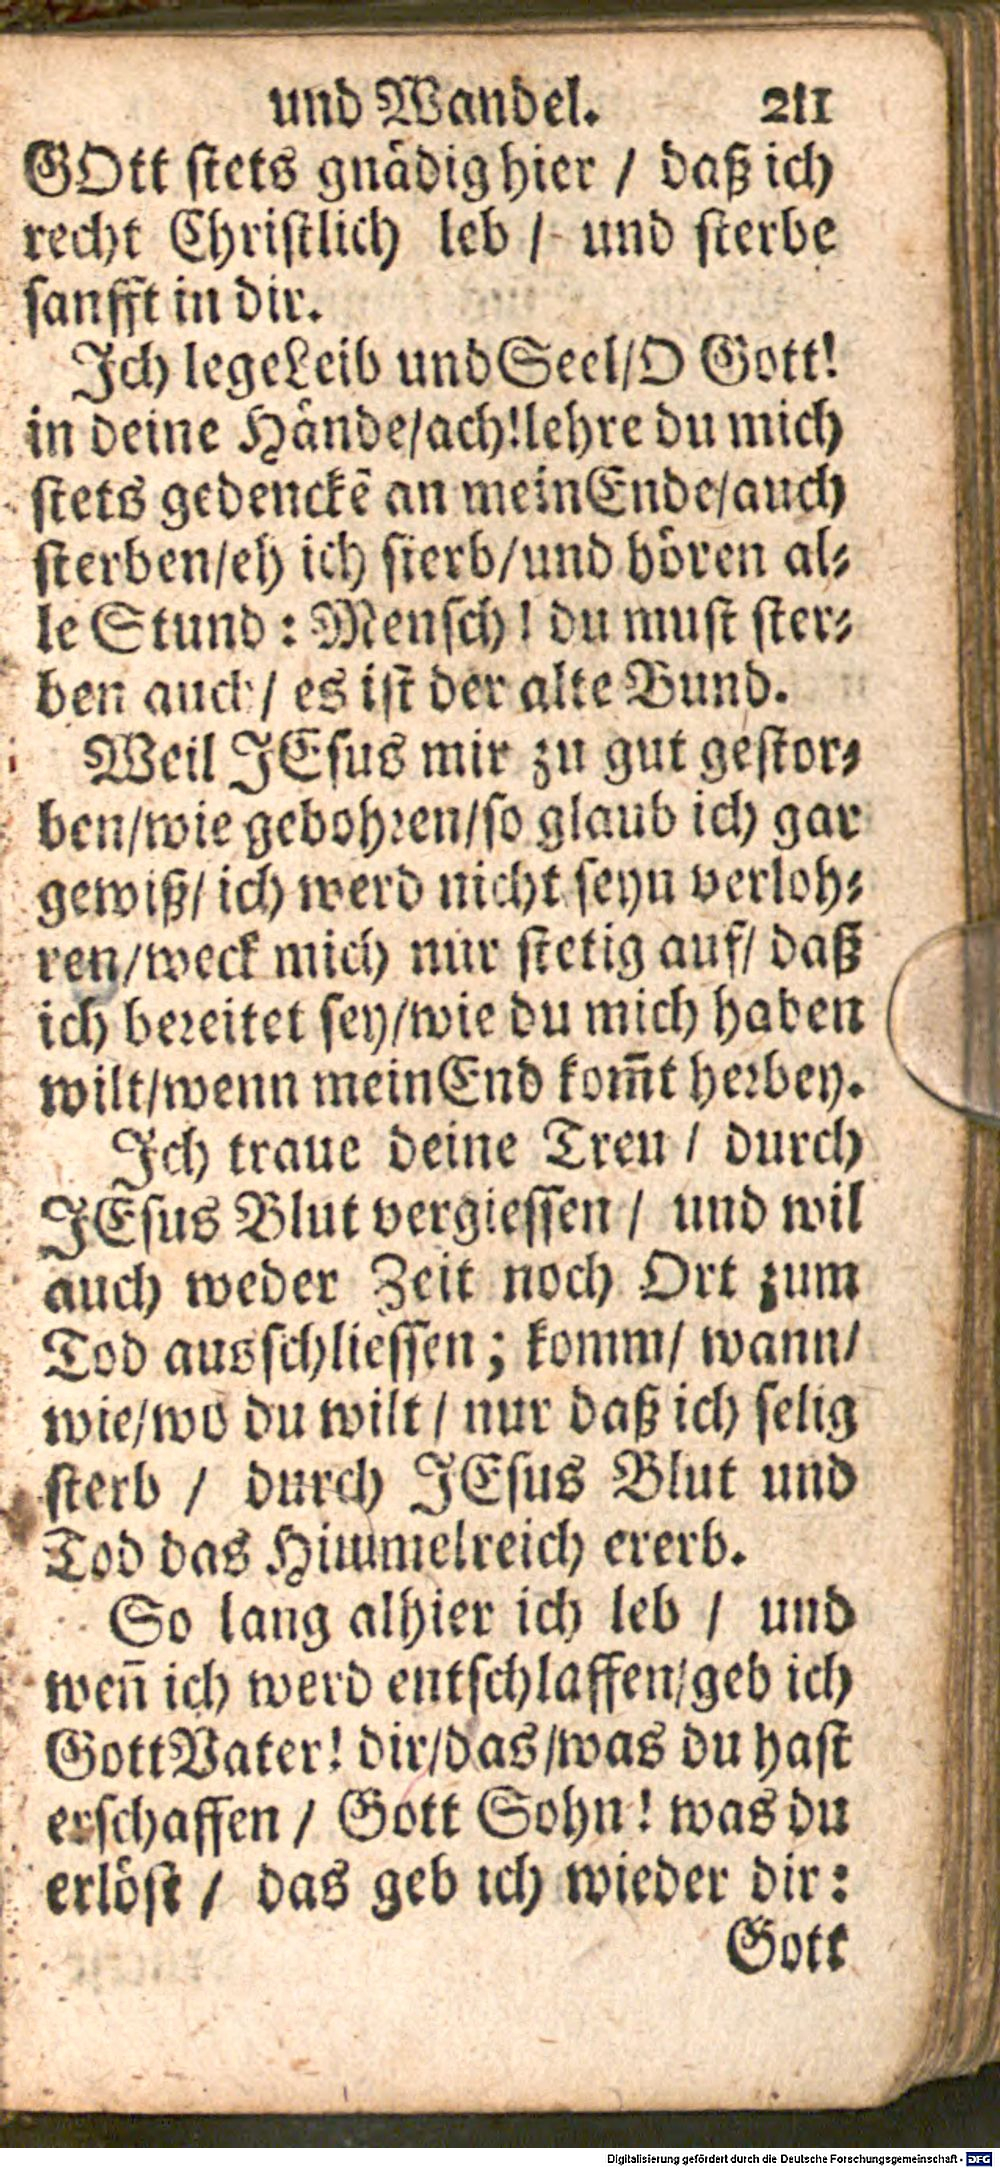 und Wandel. 211
GOtt ſtets gnädig hier / daß ich
recht Chriſtlich leb / und ſterbe
ſanfft in dir.
Ich lege Leib und Seel/O Gott!
in deine Hände/ach!lehre du mich
ſtets gedenckẽ an mein Ende/auch
ſterben/eh ich ſterb/und hören al⸗
le Stund : Menſch! du muſt ſter⸗
ben auch/ es iſt der alte Bund.
Weil JEſus mir zu gut geſtor⸗
ben/wie gebohꝛen/ſo glaub ich gar
gewiß/ ich werd nicht ſeyn verloh⸗
ren/weck mich nur ſtetig auf/ daß
ich beꝛeitet ſey/wie du mich haben
wilt/wenn mein End kom̃t heꝛbey.
Ich traue deine Treu / durch
JEſus Blut vergieſſen / und wil
auch weder Zeit noch Ort zum
Tod ausſchlieſſen; komm/ wann/
wie/wo du wilt / nur daß ich ſelig
ſterb / durch JEſus Blut und
Tod das Himmelreich ererb.
So lang alhier ich leb / und
weñ ich werd entſchlaffen/geb ich
Gott Vater! dir/das/was du haſt
erſchaffen / Gott Sohn! was du
erlöſt / das geb ich wieder dir:
Gott
Digitalisierung gefördert durch die Deutsche Forschungsgemeinschaft - DFG